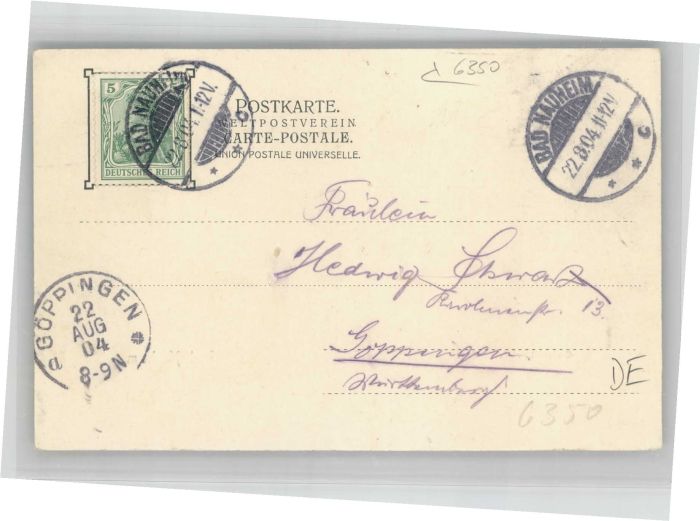 6350
5
DEUTSCHES REICH
BAD NAUHEIM
22.8.04.11-12V.
c
POSTKARTE.
WELTPOSTVEREIN
CARTE-POSTALE.
UNION POSTALE UNIVERSELLE.
BAD NAUHEIM
22.8.04.11-12V.
c
Fräulein
Hedwig Schwarz
13.
Göppingen
Württemberg
a GÖPPINGEN
22
AUG
04
8-9N
DE
6350